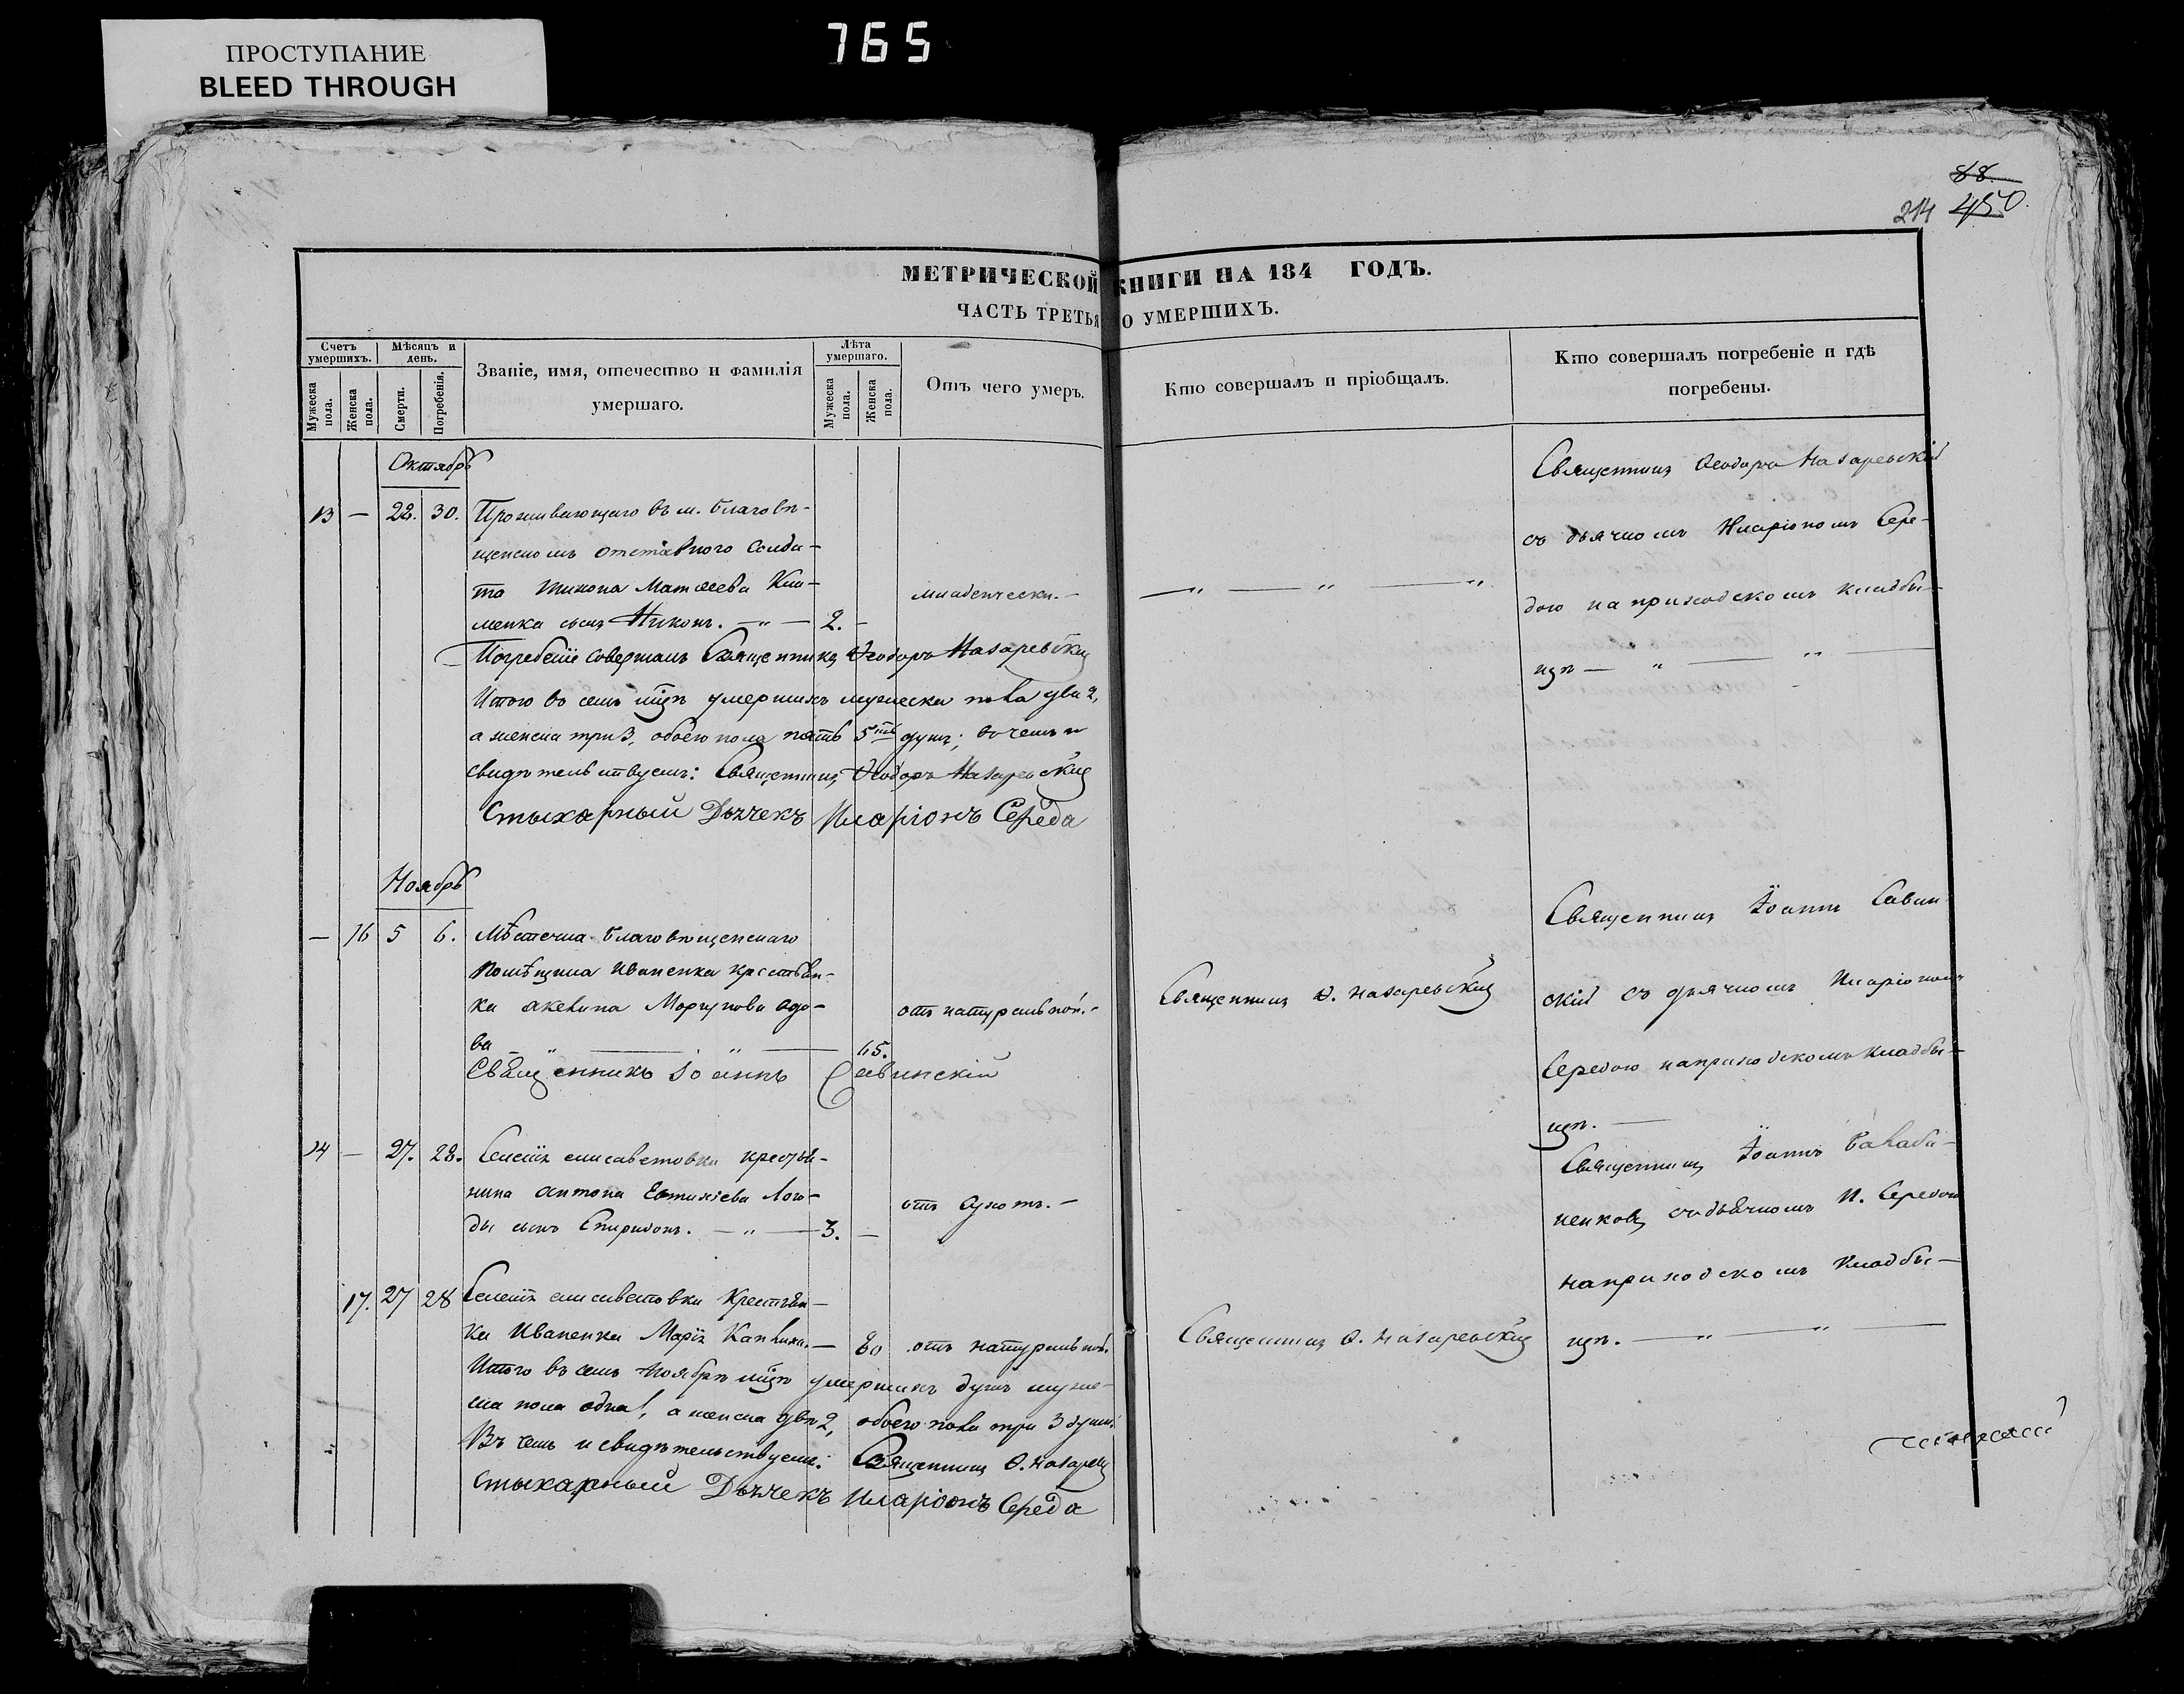 ПРОСТУПАНИЕ
BLEED THROUGH
765
88.
214 450.
МЕТРИЧЕСКОЙ КНИГИ НА 184 ГОДЪ.
ЧАСТЬ ТРЕТЬЯ О УМЕРШИХЪ.
Счетъ умершихъ.
Мужеска пола.
Женска пола.
Мѣсяцъ и день.
Смерти.
Погребенія.
Званіе, имя, отечество и фамилія
умершаго.
Лѣта умершаго.
Мужеска пола.
Женска пола.
Отъ чего умеръ.
Кто совершалъ и пріобщалъ.
Кто совершалъ погребеніе и гдѣ
погребены.
Октябрь
13 — 28. 30. Проживающаго въ м. Благовѣ-
щенскомъ отставного солда-
та Тихона Матѳеева Кли-
менка сынъ Никонъ. — " — 2. —
младенчески. —
— " — " — "
Священникъ Ѳеодоръ Назаревскій
съ дьячкомъ Иларіономъ Сере-
дою на приходскомъ кладби-
щѣ — " — " —
Погребеніе совершалъ Священникъ Ѳеодоръ Назаревскій
Итого въ семъ мцѣ умершихъ мужеска пола два 2,
а женска три 3, обоего пола пять 5ть душъ; въ чемъ и
свидѣтельствуемъ: Священникъ Ѳеодоръ Назаревскій
Стыхарный Дьячекъ Иларіонъ Середа
Ноябрь
— 16 5 6. Мѣстечка Благовѣщенскаго
Помѣщика Иваненка крестьян-
ка Моргунова вдо-
ва — " — " — 65.
отъ натуральной. —
Священникъ Ѳ. Назаревскій
Священникъ Іоаннъ Савин-
скій съ дьячкомъ Иларіономъ
Середою на приходскомъ кладби-
щѣ. —
Священникъ Іоаннъ Савинскій
14 — 27. 28. Селенія Елисаветовки крестья-
нина Антона Евтихіева
сынъ Спиридонъ. — " — 3. —
отъ сухотъ. —
Священникъ Іоаннъ
съ дьячкомъ И. Середою
на приходскомъ кладби-
щѣ. — " — " —
17. 27 28 Селенія Елисаветовки Крестьян-
ка Иваненка Марія — 80
отъ натуральной.
Священникъ Ѳ. Назаревскій
Итого въ семъ Ноябрѣ мцѣ умершихъ душъ муже-
ска пола одна 1, а женска двѣ 2, обоего пола три 3 души.
Въ чемъ и свидѣтельствуемъ: Священникъ Ѳ. Назаревскій
Стыхарный Дьячекъ Иларіонъ Середа